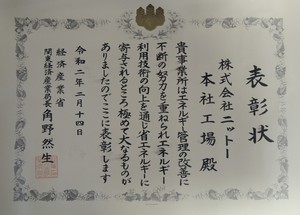 表彰状
株式会社ニットー
本社工場 殿
貴事業所はエネルギー管理の改善に
不断の努力を重ねられエネルギー
利用技術の向上を通じ省エネルギーに
寄与されるところ極めて大なるものが
ありましたのでここに表彰します
令和二年二月十四日
経済産業省
関東経済産業局長 角野然生